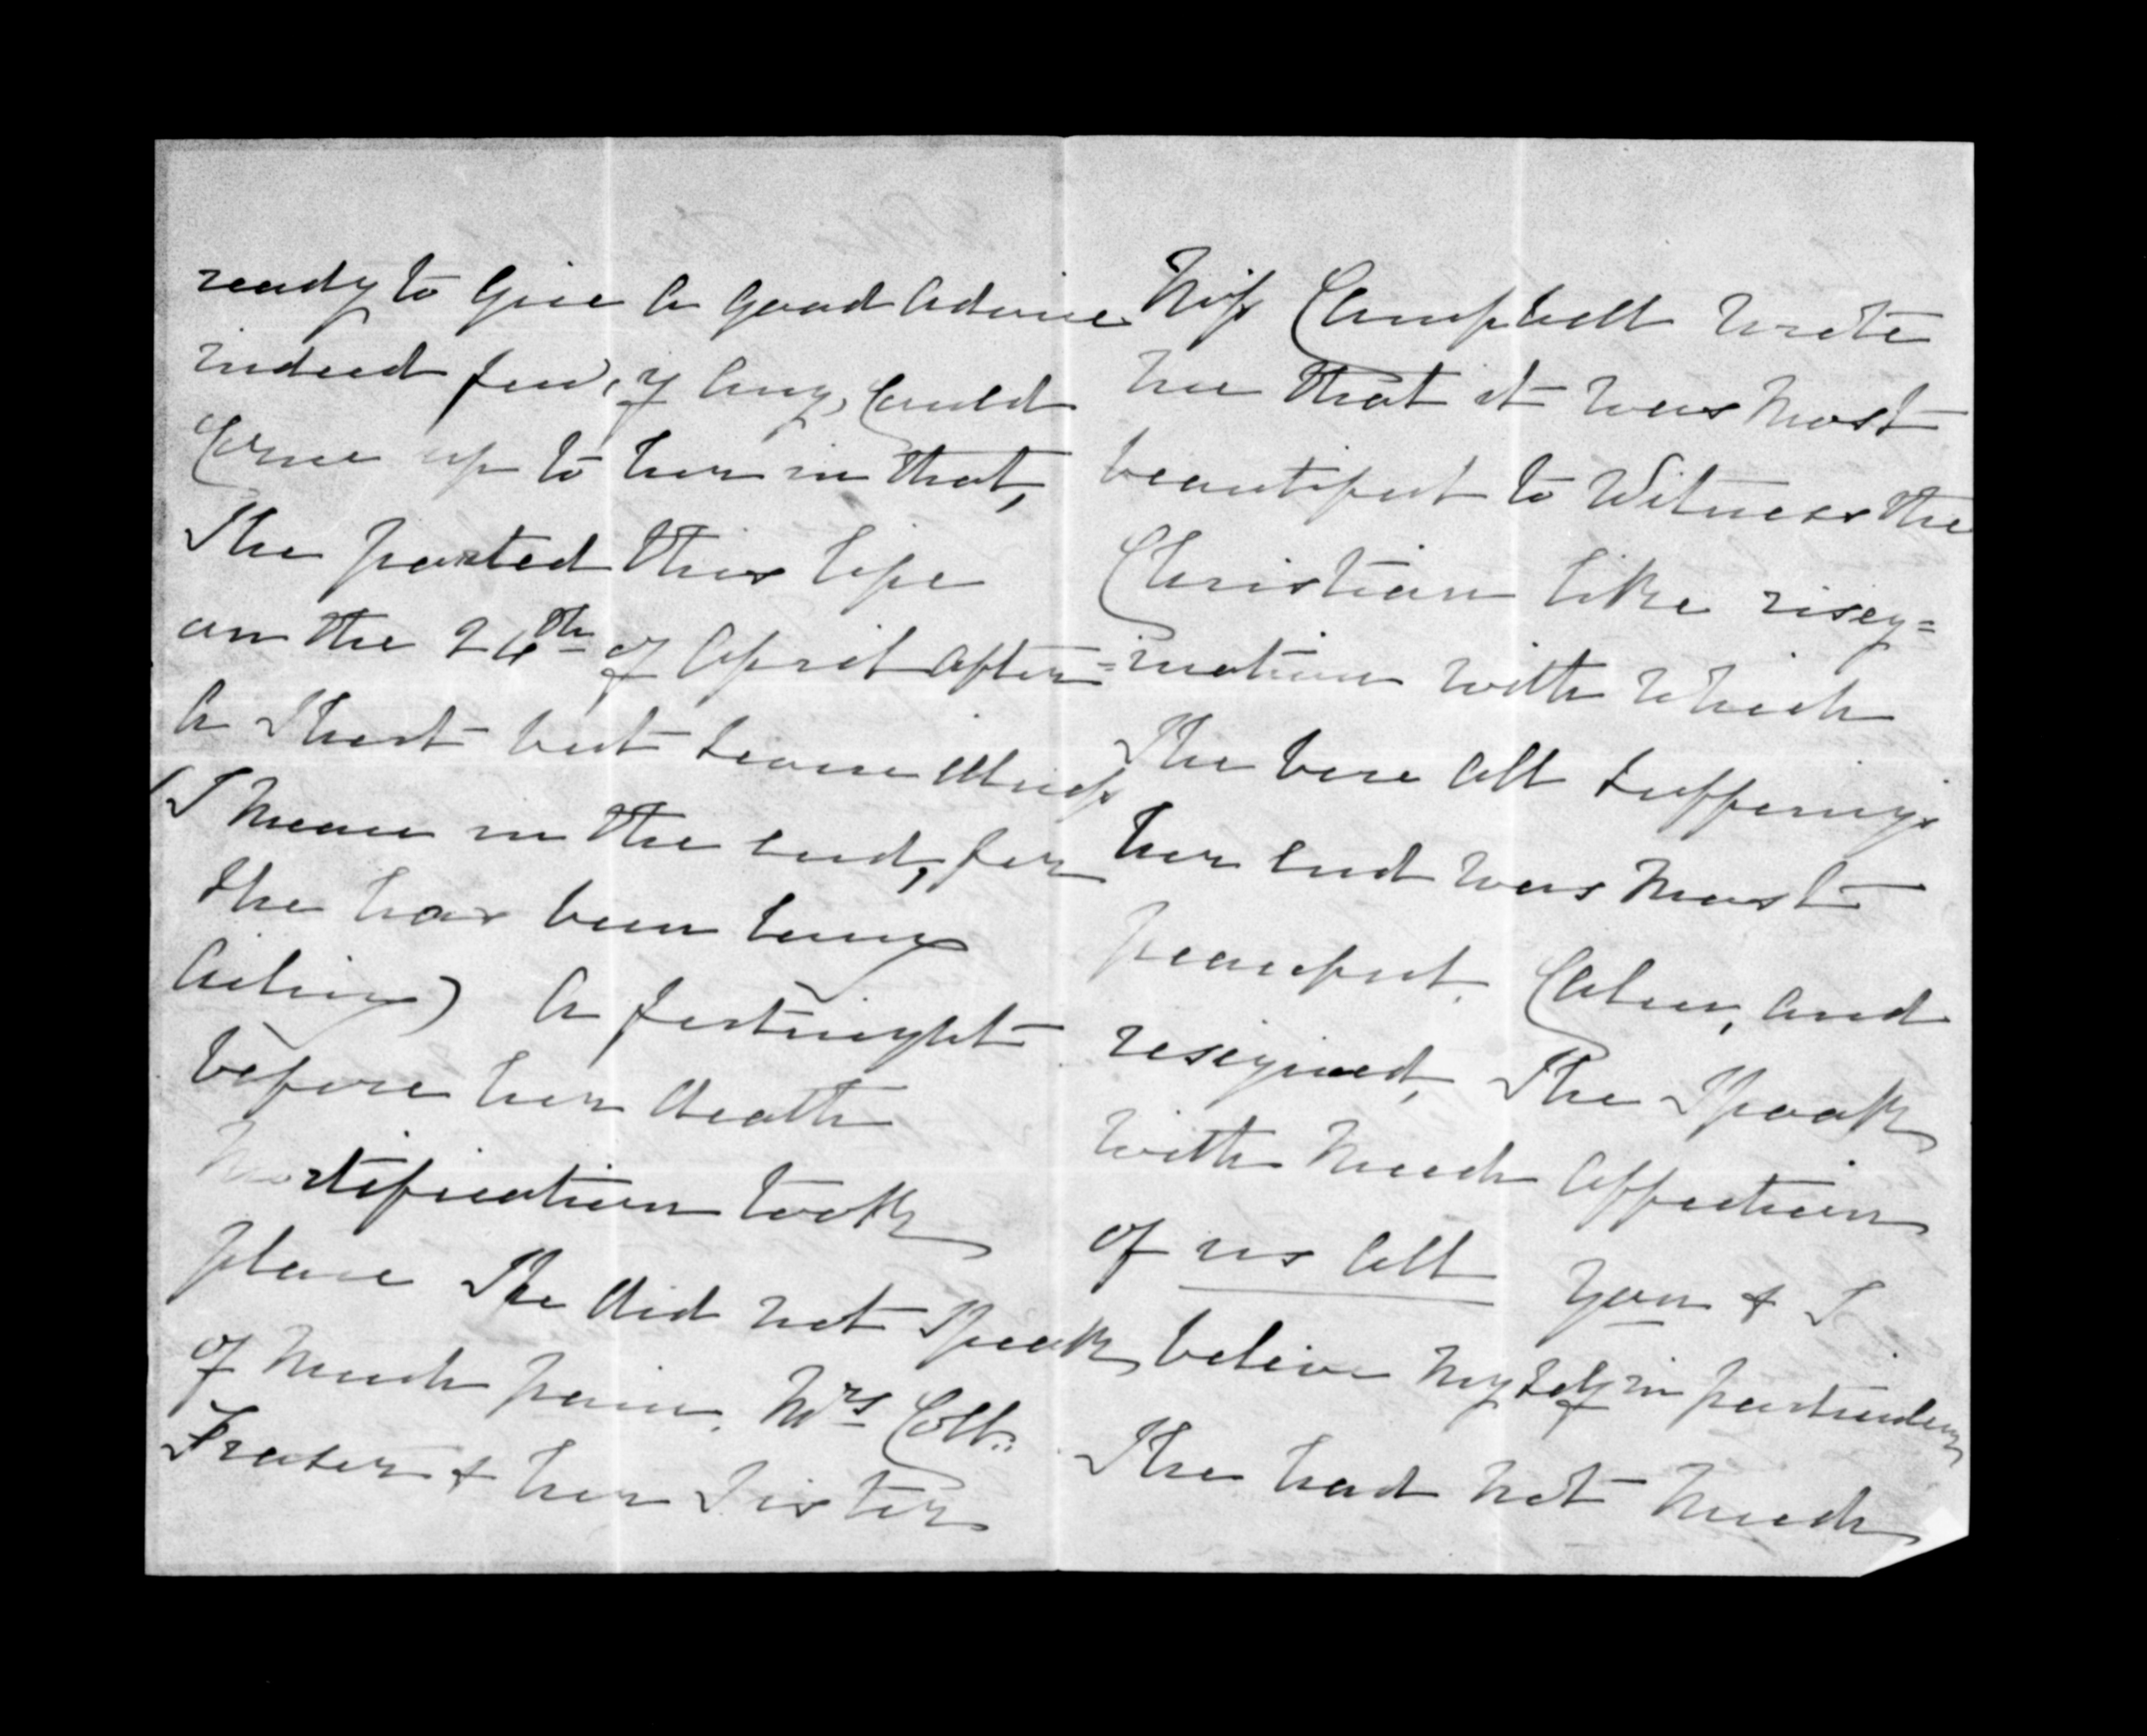 ready to give a good advice
indeed few, if any, could
come up to her in that,
She parted this life
on the 24th of April after
a Short but severe illness
(I mean in the end, for
she has been long
ailing) a fortnight
before her death
mortification took
place She did not Speak
of much pain. Mrs Coll:
Fraser & her Sister
Miss Campbell wrote
me that it was most
beautifull to Witness the
Christian like risig=
=nation with which
She bore all sufferings
her end was most
peacefull. Calm, and
resigned, She Spoak
with much affection
of us all you & I
belive myself in particular
She had not much